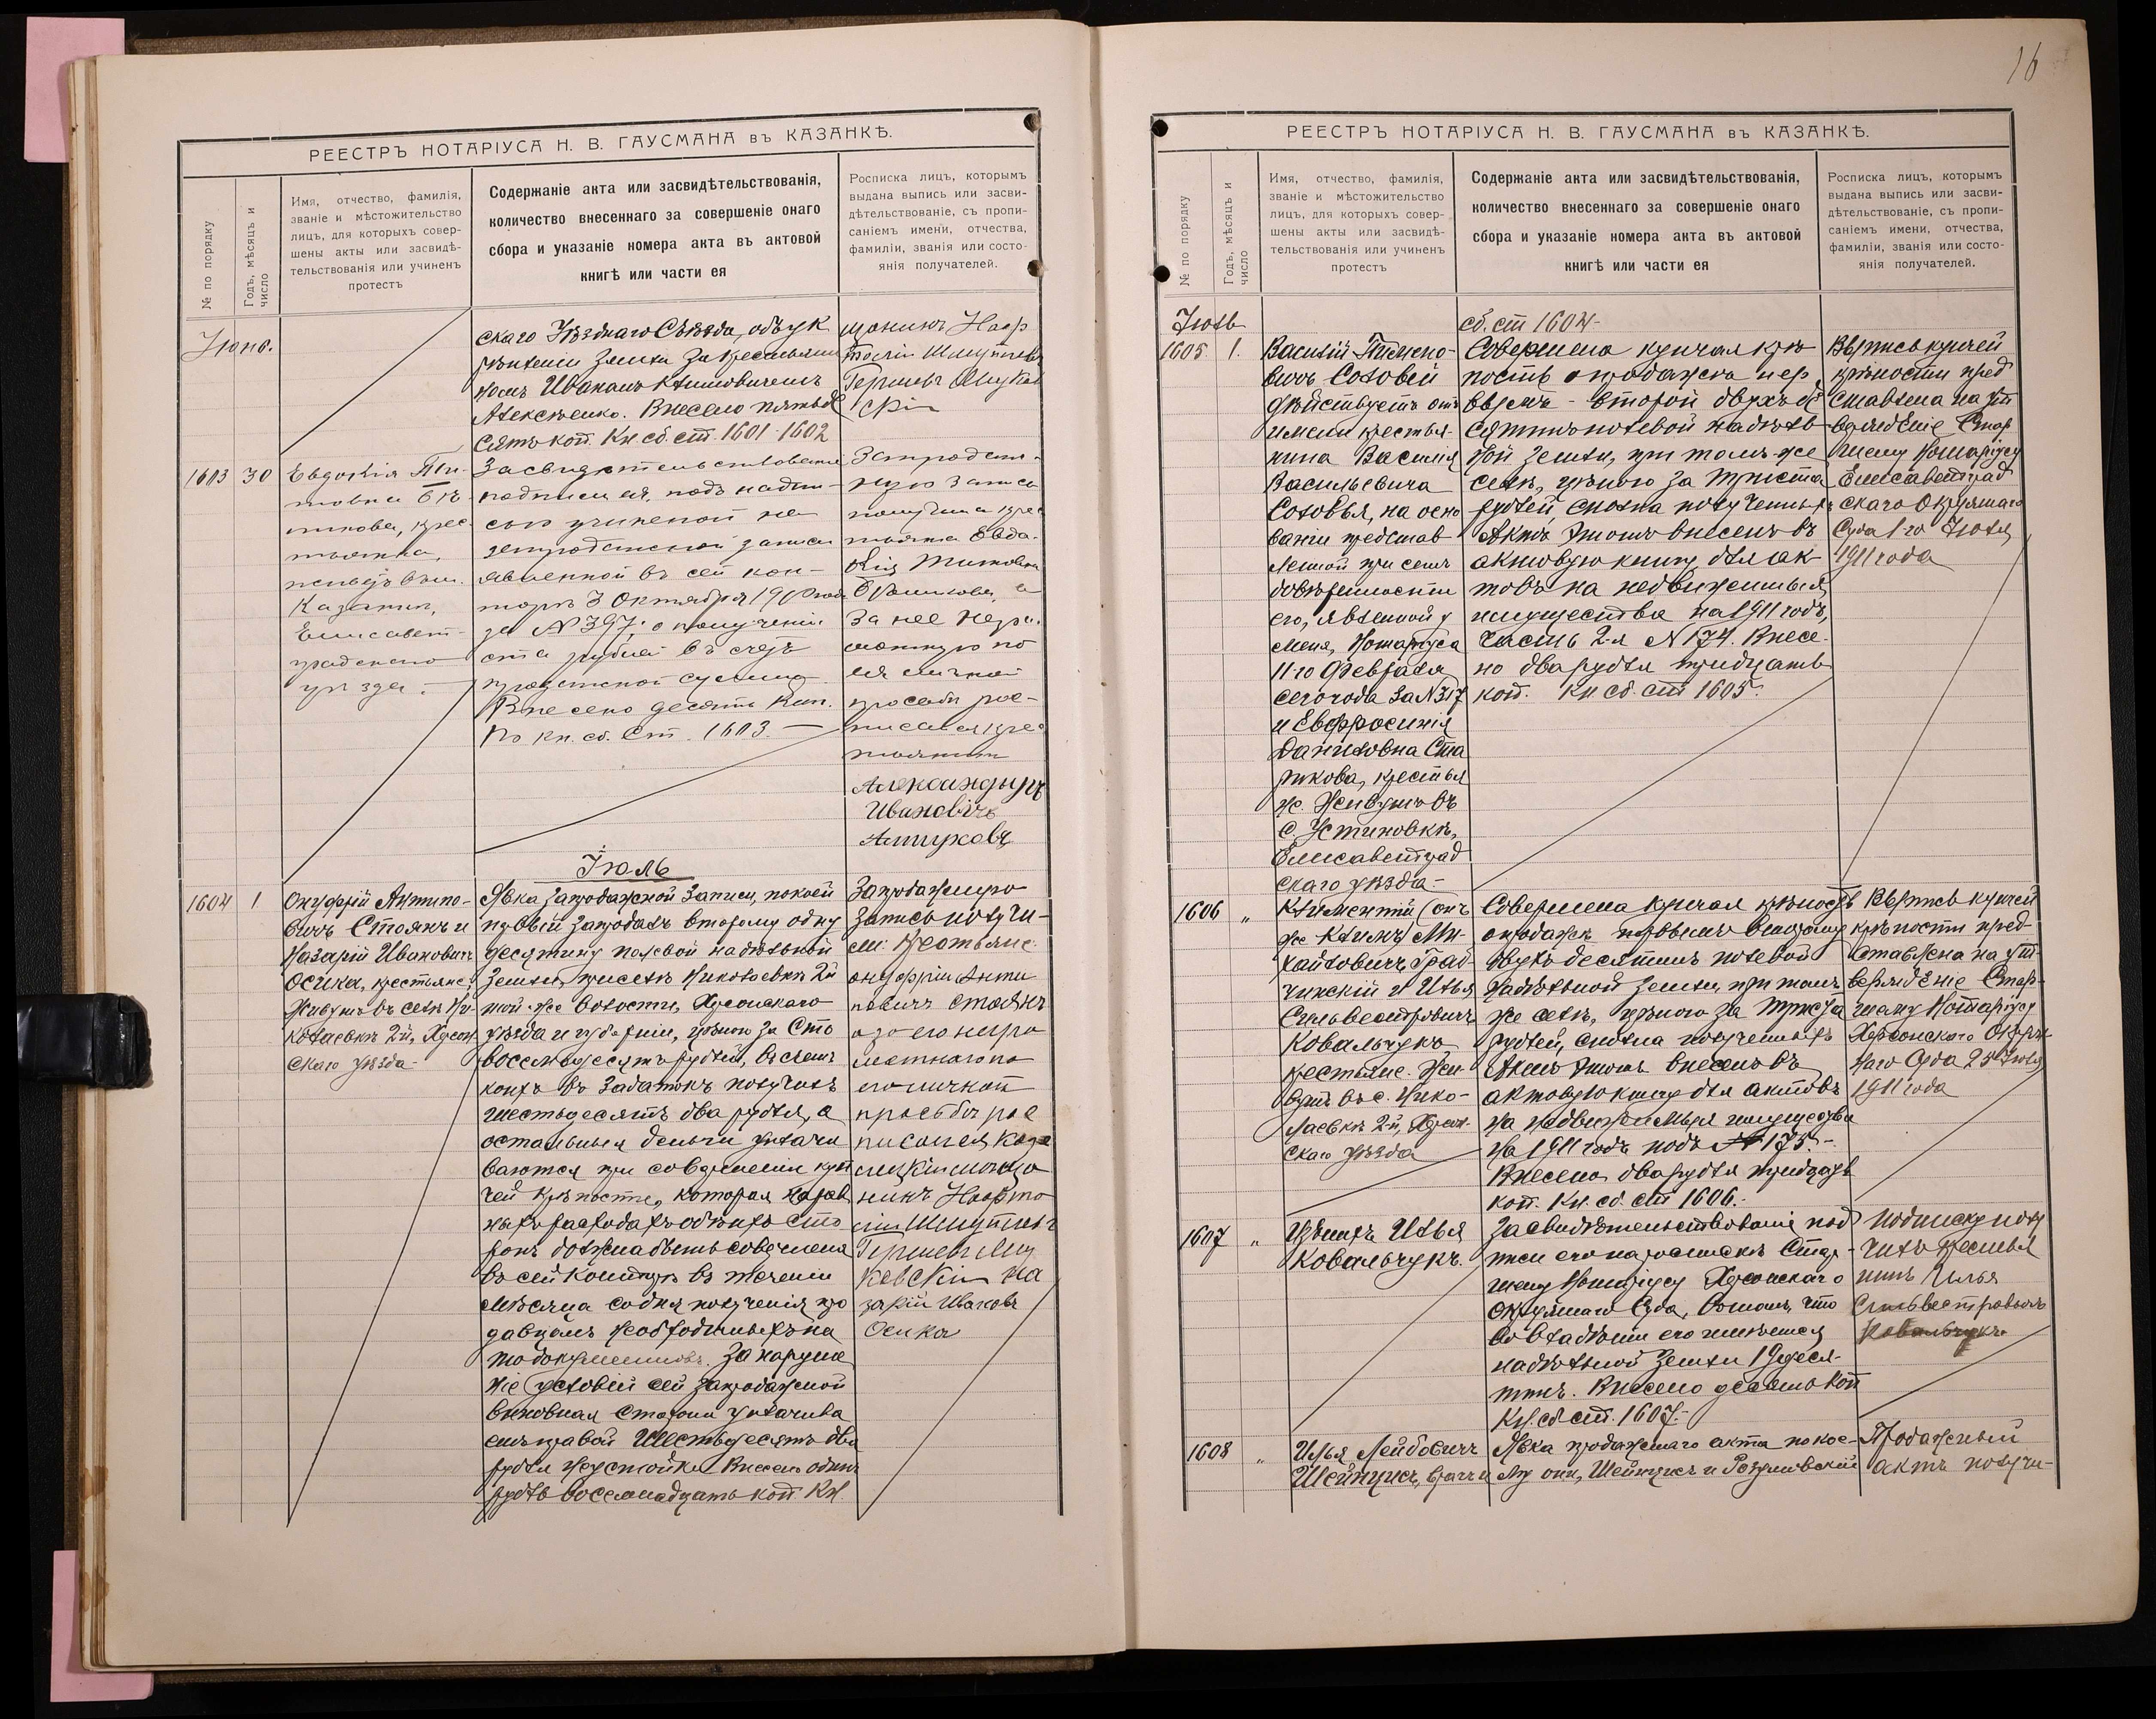 РЕЕСТРЪ НОТАРІУСА Н. В. ГАУСМАНА въ КАЗАНКѢ.
№ по порядку
Годъ, мѣсяцъ и
число
Имя, отчество, фамилія,
званіе и мѣстожительство
лицъ, для которыхъ совер-
шены акты или засвидѣ-
тельствованія или учиненъ
протестъ
Содержаніе акта или засвидѣтельствованія,
количество внесеннаго за совершеніе онаго
сбора и указаніе номера акта въ актовой
книгѣ или части ея
Росписка лицъ, которымъ
выдана выпись или засви-
дѣтельствованіе, съ пропи-
саніемъ имени, отчества,
фамиліи, званія или состо-
янія получателей.
Іюнь.
скаго Уѣзднаго Съѣзда, объ ук
рѣпленіи земли за крестьяни
номъ Иваномъ Климовичемъ
Алексѣенко. Внесено пятьде
сятъ коп. Кн. сб. ст. 1601-1602
щанинъ
Гершевъ
скій
1603 30
Евдокія Ти-
товна
крес-
тьянка,
живущ. въ м.
Казанкѣ,
Елисавет-
градскаго
уѣзда.
Засвидѣтельствованіе
подписи ея, подъ надпи-
сью учиненной на
запродажной записи
явленной въ сей кон-
торѣ 3 Октября 1910 года
за № 397, о полученіи
ста рублей въ счетъ
продажной суммы.
Внесено десять коп.
По кн. сб. ст. 1603.
Запродаж-
ную запись
получила крес
тьянка Евдо-
кія Титовна
а
за нее негра-
мотную по
ея личной
просьбѣ рос-
писался крес
тьянинъ
Александыръ
Ивановичъ
Іюль
1604 1
Онуфрій Антипо-
вичъ Стоянъ и
Назарій Ивановичъ
Осика, крестьяне,
живущ. въ селѣ Ни
колаевкѣ 2й, Херсон
скаго уѣзда.
Явка запродажной записи, по коей
первый запродалъ второму одну
десятину полевой надѣльной
земли, при селѣ Николаевкѣ 2й
той-же волости, Херсонскаго
уѣзда и губерніи, цѣною за сто
восемьдесятъ рублей, въ счетъ
коихъ въ задатокъ получилъ
шестьдесятъ два рубля, а
остальныя деньги уплачи
ваются при совершеніи куп
чей крѣпости, которая на рав
ныхъ расходахъ обѣихъ сто
ронъ должна быть совершена
въ сей конторѣ въ теченіи
мѣсяца со дня полученія про
давцомъ необходимыхъ на
то документовъ. За наруше
ніе условій сей запродажной
виновная сторона уплачива
етъ правой шестьдесятъ два
рубля неустойки. Внесено одинъ
рубль восемнадцать коп. Кн.
Запродажную
запись получи-
ли: крестьяне
Онуфрій Анти
повичъ Стоянъ
а за его негра
мотнаго по
его личной
просьбѣ рос
писался
мѣща
нинъ
Гершевъ
на
зарій Ивановъ
Осика
16
РЕЕСТРЪ НОТАРІУСА Н. В. ГАУСМАНА въ КАЗАНКѢ.
№ по порядку
Годъ, мѣсяцъ и
число
Имя, отчество, фамилія,
званіе и мѣстожительство
лицъ, для которыхъ совер-
шены акты или засвидѣ-
тельствованія или учиненъ
протестъ
Содержаніе акта или засвидѣтельствованія,
количество внесеннаго за совершеніе онаго
сбора и указаніе номера акта въ актовой
книгѣ или части ея
Росписка лицъ, которымъ
выдана выпись или засви-
дѣтельствованіе, съ пропи-
саніемъ имени, отчества,
фамиліи, званія или состо-
янія получателей.
Іюль
сб. ст 1604-
1605 1.
Василій Пимено-
вичъ Соловей
дѣйствуетъ отъ
имени крестья-
нина Василія
Васильевича
Соловья, на осно
ваніи представ
ленной при семъ
довѣренности
его, явленной у
меня, Нотаріуса
11-го Февраля
сего года за № 317
и Евфросинія
Даниловна Ста
рикова, крестья
не. Живущ. въ
с. Устиновкѣ,
Елисаветград
скаго уѣзда.-
Совершена купчая крѣ
пость о продажѣ пер
вымъ - второй двухъ де
сятинъ полевой надѣль
ной земли, при томъ-же
селѣ, цѣною за триста
рублей сполна полученныхъ
Актъ этотъ внесенъ въ
актовую книгу для ак-
товъ на недвижимыя
имущества на 1911 годъ,
часть 2-я № 174. Внесе-
но два рубля тридцать
коп. Кн. сб. ст 1605.
Выпись купчей
крѣпости пред
ставлена на ут
вержденіе Стар
шему Нотаріусу
Елисаветград
скаго Окружнаго
Суда 1-го Іюля
1911 года
1606 "
Климентій (онъ
же Климъ) Ми-
хайловичъ Град-
чинскій и Илья
Сильвестровичъ
Ковальчукъ
крестьяне. Жи-
вущ. въ с. Нико-
лаевкѣ 2-й, Херсон-
скаго уѣзда
Совершена купчая крѣпость
о продажѣ первымъ второму
двухъ десятинъ полевой
надѣльной земли, при томъ
же селѣ, цѣною за триста
рублей, сполна полученныхъ
Актъ этотъ внесенъ въ
актовую книгу для актовъ
на недвижимыя имущества
на 1911 годъ подъ № 175.-
Внесено два рубля тридцать
коп. Кн. сб. ст 1606.
Выпись купчей
крѣпости пред-
ставлена на ут
вержденіе Стар-
шему Нотаріусу
Херсонскаго Окруж-
наго Суда 25 Іюля
1911 года
1607 "
Илья
Ковальчукъ.
Засвидѣтельствованіе под
писи его на роспискѣ Стар-
шему Нотаріусу Херсонскаго
Окружнаго Суда, въ томъ, что
во владѣніи его имѣется
надѣльной земли 19 деся-
тинъ. Внесено десять коп
Кн. сб. ст. 1607.-
Подписку полу
чилъ крестья
нинъ Илья
Сильвестровичъ
Ковальчукъ
1608 "
Илья Лейбовичъ
Шейнцисъ, врачъ и
Явка продажнаго акта по кое-
му они, Шейнцисъ и
Продажный
актъ получи-